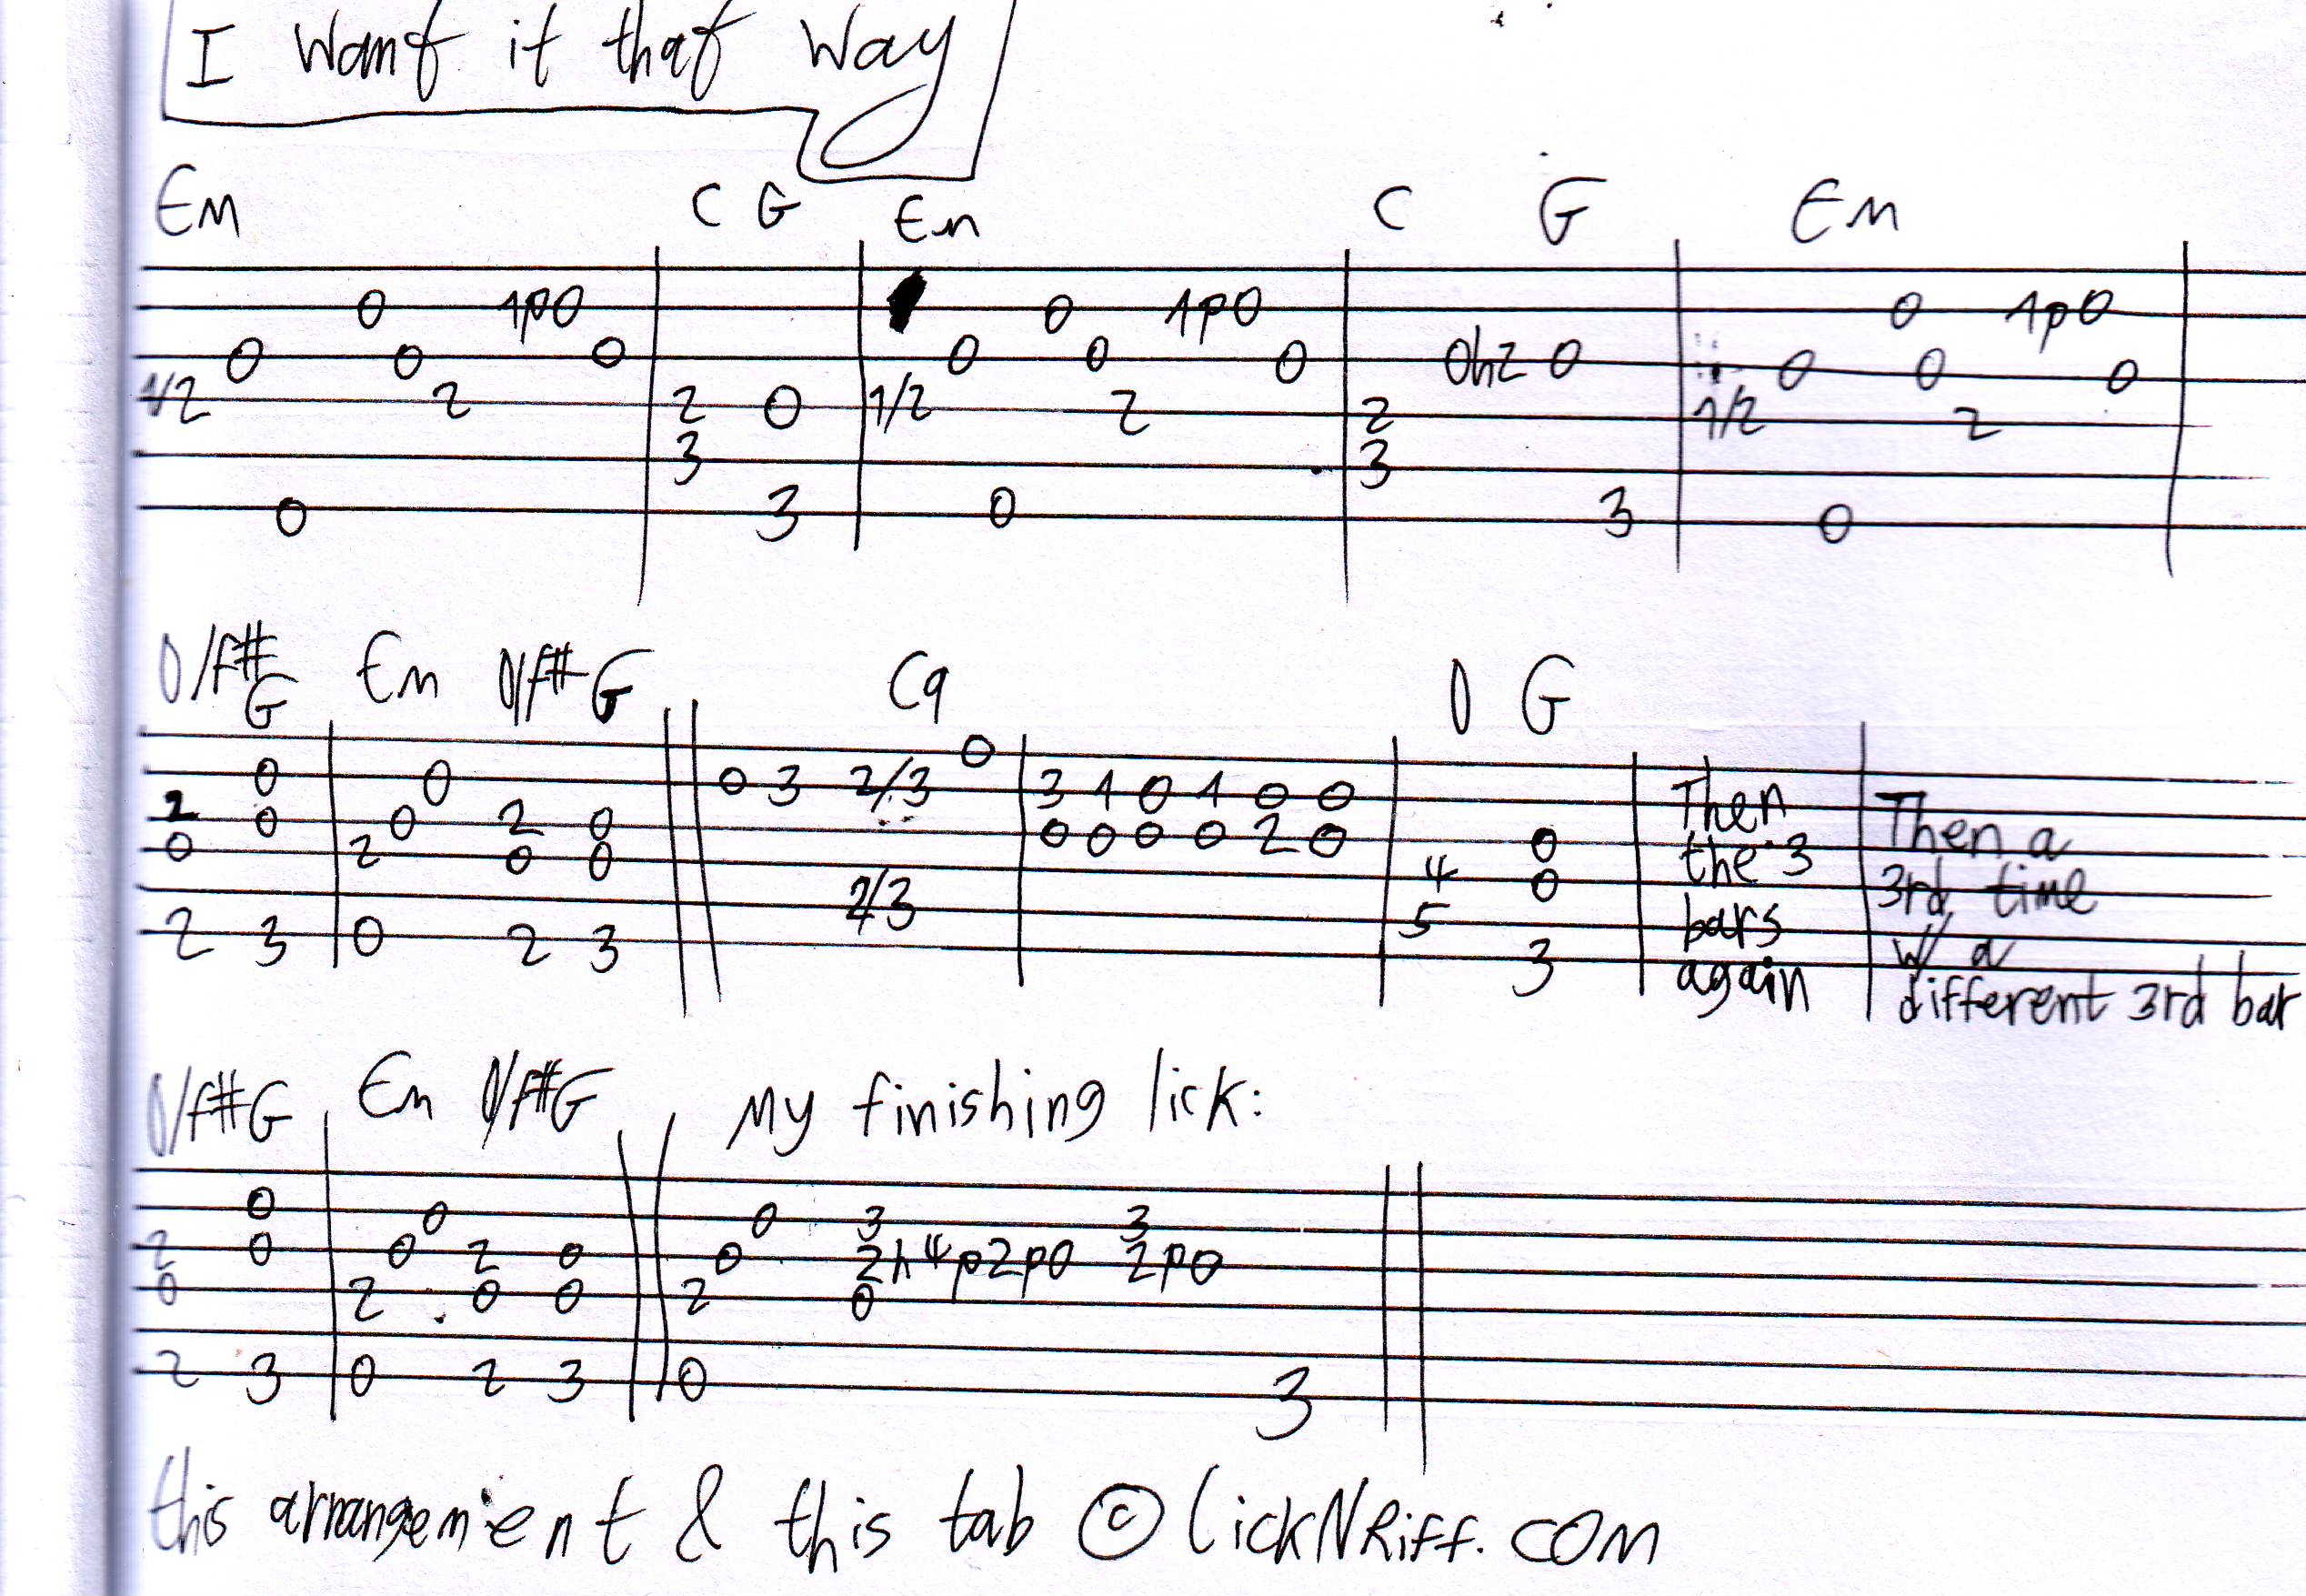 I want it that way
Em C G Em C G Em
0 1p0 0 1p0 0 1p0
0 0 0 0 0 0 0h2 0 0 0 0
1/2 2 2 0 1/2 2 2 1/2 2
3 3
0 3 0 3 0
D/F# G Em D/F# G C9 D G
0
0 0 0 3 2/3 3 1 0 1 0 0
2 0 0 2 0 0 0 0 0 2 0 0
0 2 0 0 4 0
2/3 5
2 3 0 2 3 3
Then
the 3
bars
again
Then a
3rd time
w/ a
different 3rd bar
D/F# G Em D/F# G My finishing lick:
0 0 0 3 3
2 0 0 2 0 0 2h4p2p0 2p0
0 2 0 0 2 0
2 3 0 2 3 0 3
this arrangement & this tab © LickNRiff.com